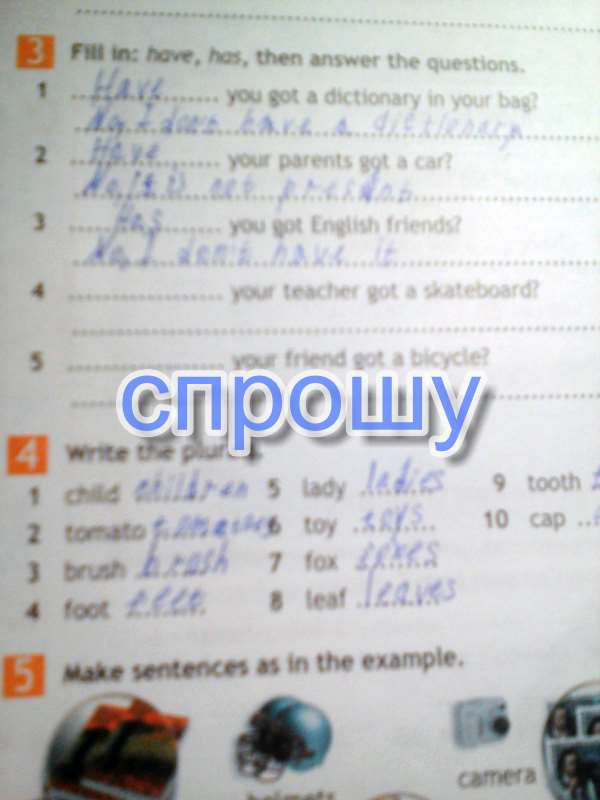 3 Fill in: have, has, then answer the questions.
1 Have you got a dictionary in your bag?
No, I don't have a
2 Have your parents got a car?
No, it is not
3 Has you got English friends?
No, I don't have it
4 your teacher got a skateboard?
5 your friend got a bicycle?
спрошу
4 Write the plural.
1 child children 5 lady ladies 9 tooth
2 tomato 6 toy toys 10 cap
3 brush brash 7 fox
4 foot feet 8 leaf leaves
5 Make sentences as in the example.
helmets camera